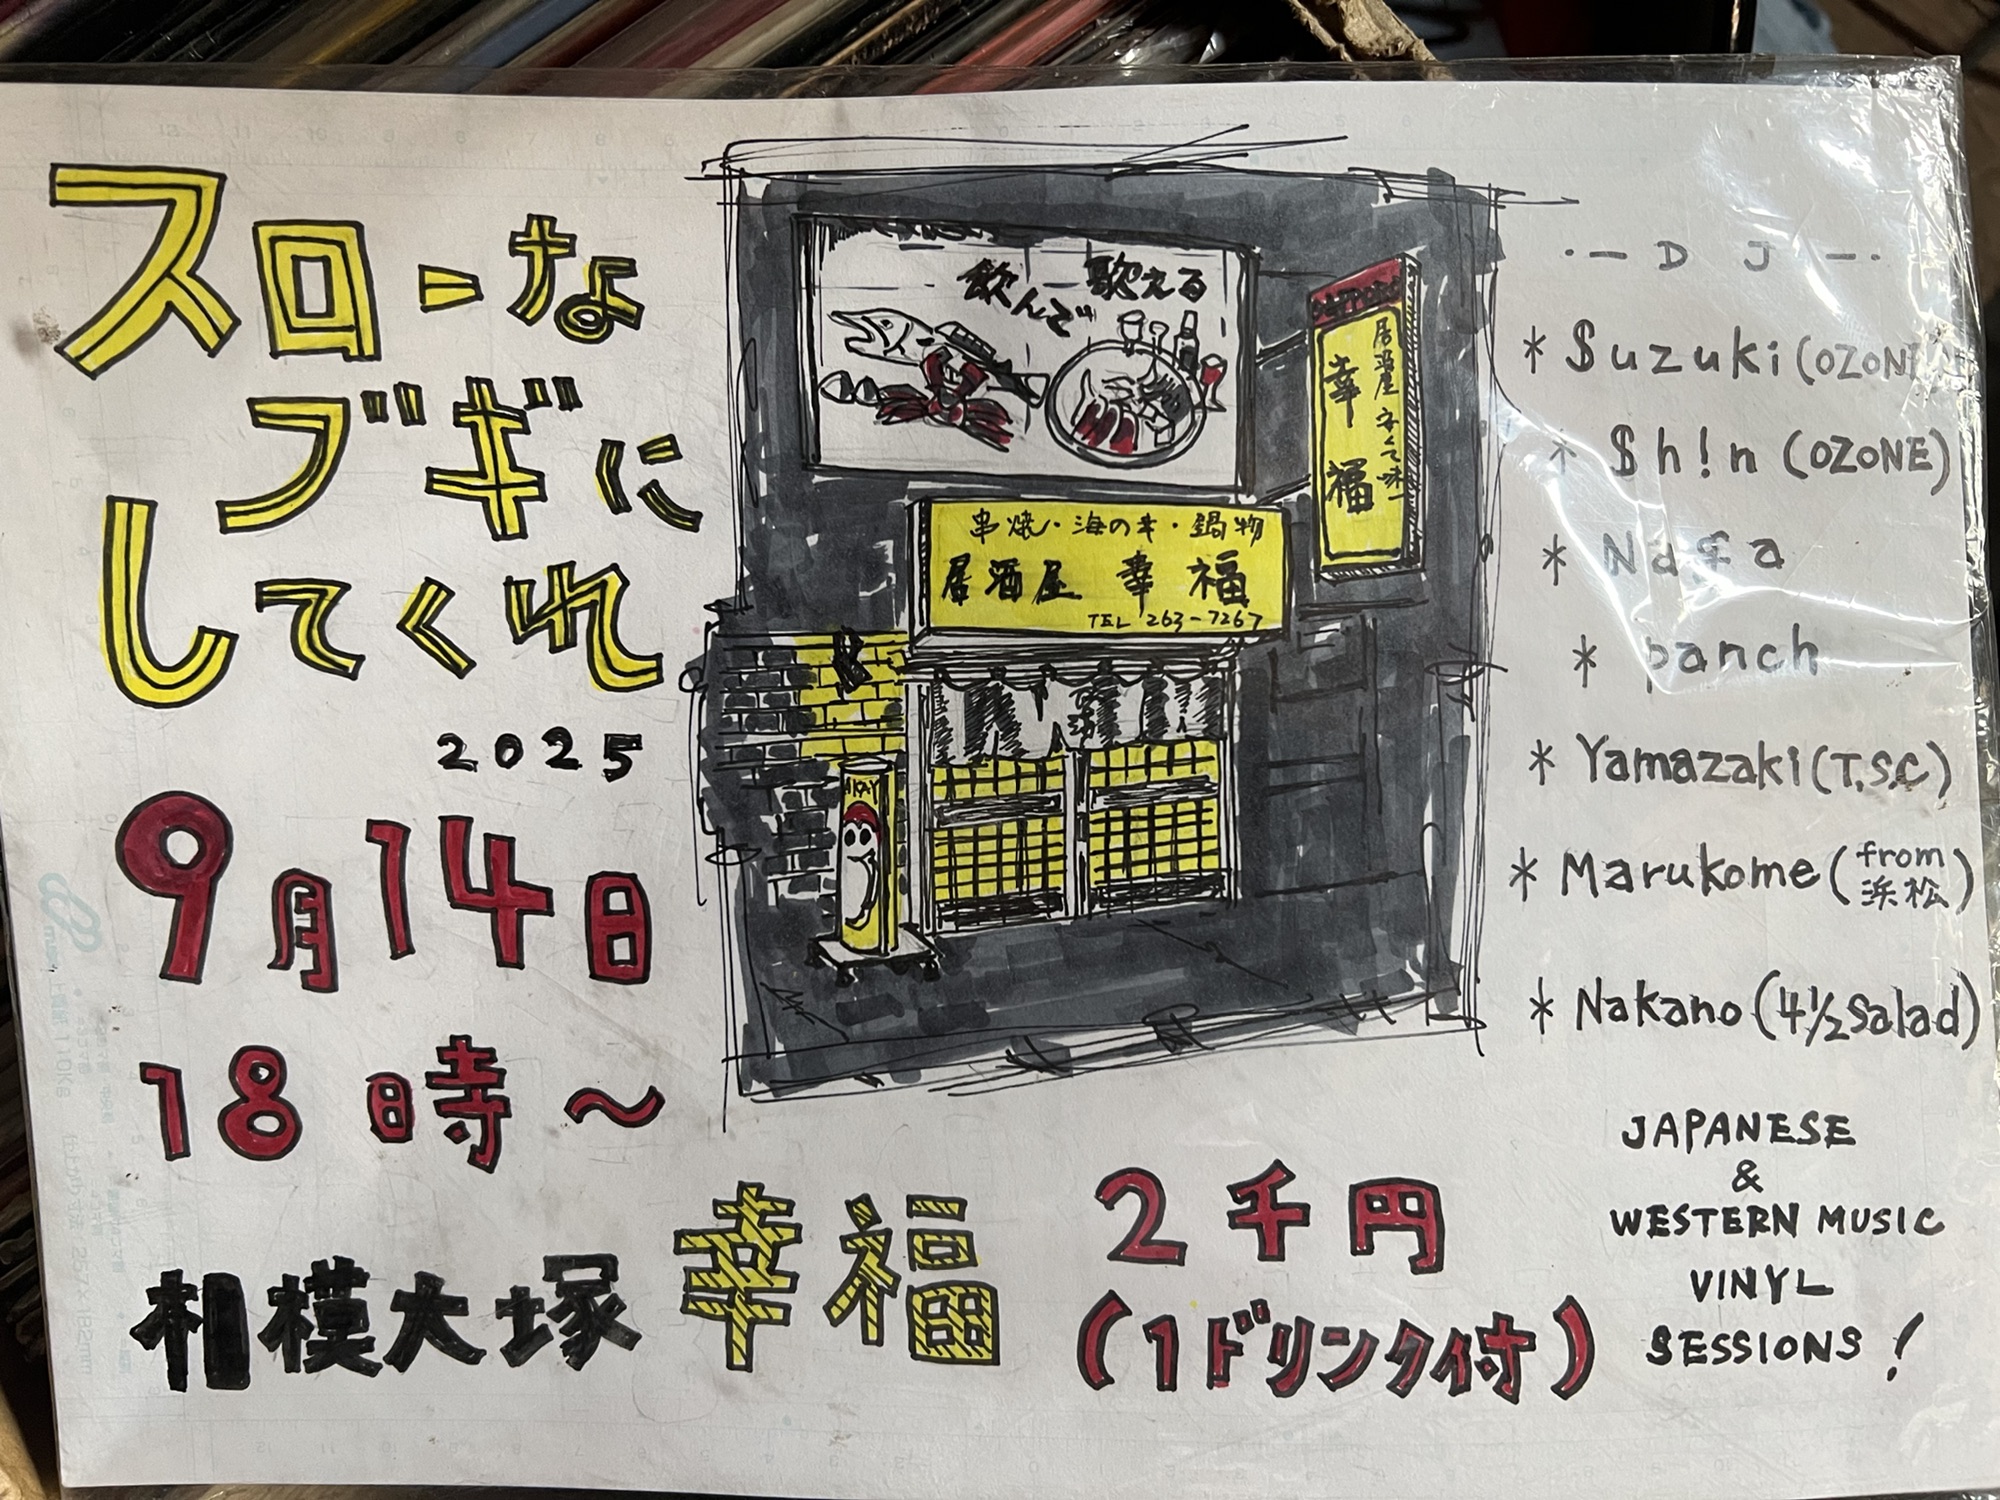 スローな
ブギに
してくれ
2025
9月14日
18時～
相模大塚 幸福
2千円
(1ドリンク付)
飲んで 歌える
SAPPORO
居酒屋 安くて味一
幸福
串焼・海の幸・鍋物
居酒屋 幸福
TEL 263-7267
・― D J ―・
* $uzuki (OZONE)
* $h!n (OZONE)
* panch
* Yamazaki (T.S.C)
* Marukome (from 浜松)
* Nakano (4½ Salad)
JAPANESE
&
WESTERN MUSIC
VINYL
SESSIONS!